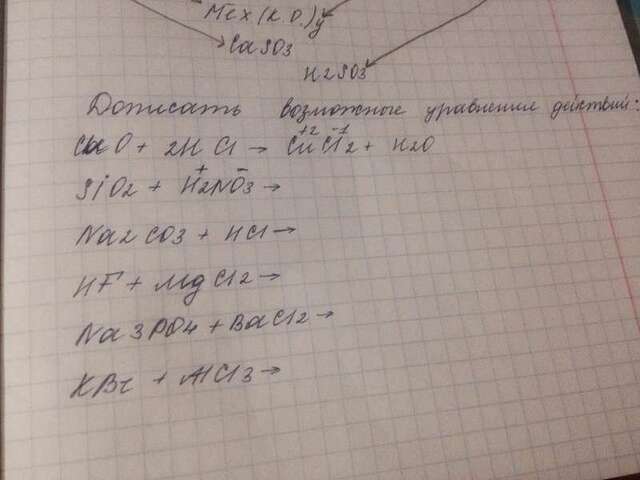 Mex(K.O.)y
CaSO3
H2SO3
Дописать возможные уравнения действий:
CuO + 2HCl → Cu+2Cl-12 + H2O
SiO2 + H+2NO-3 →
Na2CO3 + HCl →
HF + MgCl2 →
Na3PO4 + BaCl2 →
KBr + AlCl3 →